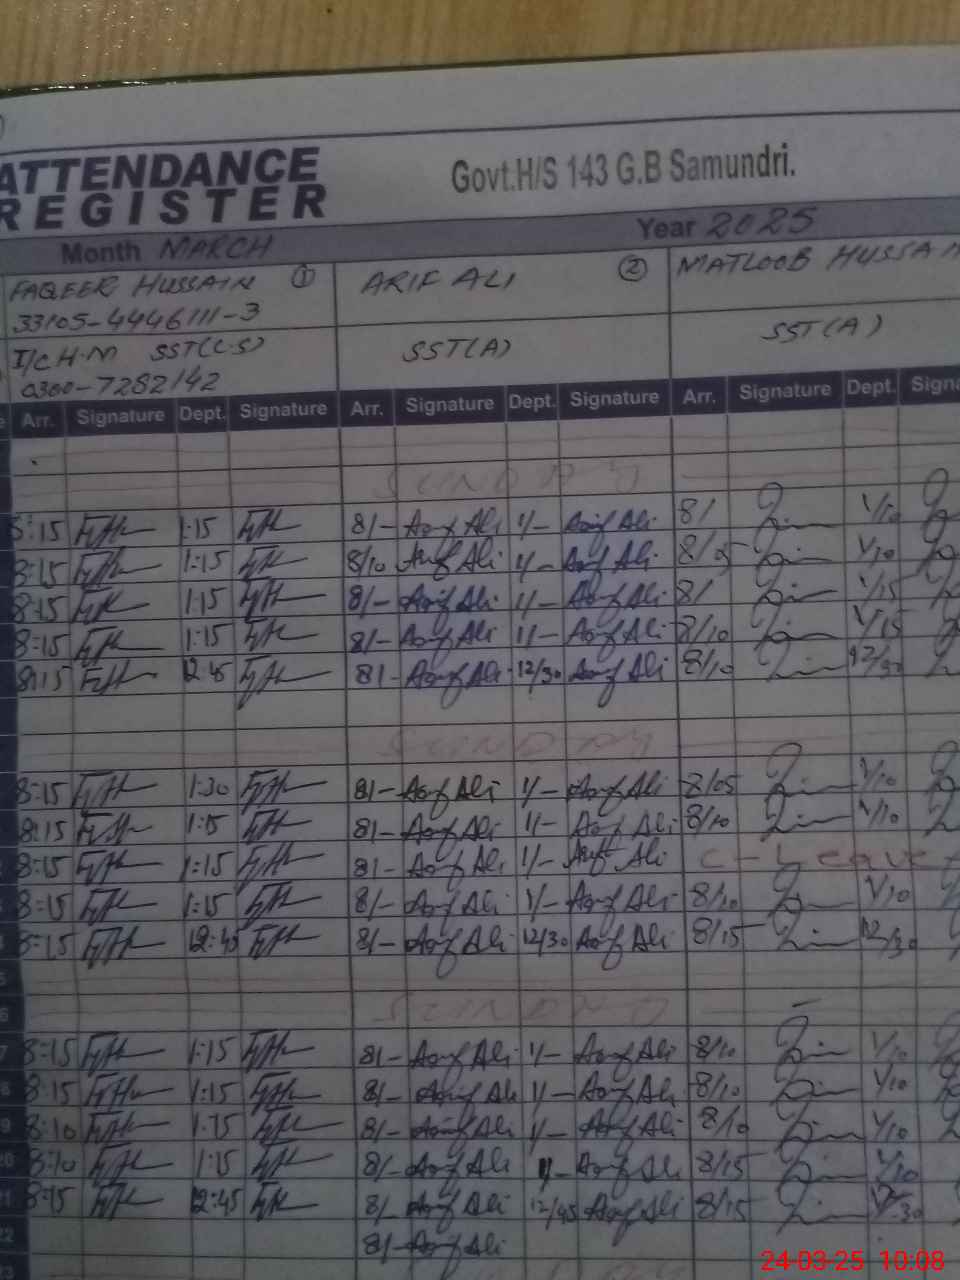 ATTENDANCE
REGISTER
Govt.H/S 143 G.B Samundri.
Month MARCH Year 2025
FAQEER HUSSAIN ① ARIF ALI ② MATLOOB HUSSA
33105-4446111-3
I/C H.M SST(C.S) SST(A) SST(A)
0300-7282142
Arr. Signature Dept. Signature Arr. Signature Dept. Signature Arr. Signature Dept. Signa
SUNDAY
8:15 1:15 8/- Arif Ali 1/- Arif Ali 8/ 1/10
8:15 1:15 8/10 Arif Ali 1/- Arif Ali 8/05 1/10
8:15 1:15 8/- Arif Ali 1/- Arif Ali 8/ 1/15
8:15 1:15 8/- Arif Ali 1/- Arif Ali 8/10 1/15
8:15 12:45 8/- Arif Ali 12/30 Arif Ali 8/10 12/30
SUNDAY
8:15 1:30 8/- Arif Ali 1/- Arif Ali 8/05 1/10
8:15 1:15 8/- Arif Ali 1/- Arif Ali 8/10 1/10
8:15 1:15 8/- Arif Ali 1/- Arif Ali C-Leave
8:15 1:15 8/- Arif Ali 1/- Arif Ali 8/10 1/10
8:15 12:45 8/- Arif Ali 12/30 Arif Ali 8/15 12/30
5
6 SUNDAY
7 8:15 1:15 8/- Arif Ali 1/- Arif Ali 8/10 1/10
8 8:15 1:15 8/- Arif Ali 1/- Arif Ali 8/10 1/10
9 8:10 1:15 8/- Arif Ali 1/- Arif Ali 8/10 1/10
20 8:10 1:15 8/- Arif Ali 1/- Arif Ali 8/15 1/10
21 8:15 12:45 8/- Arif Ali 12/45 Arif Ali 8/15 12/30
22 8/- Arif Ali
23
24-03-25 10:08